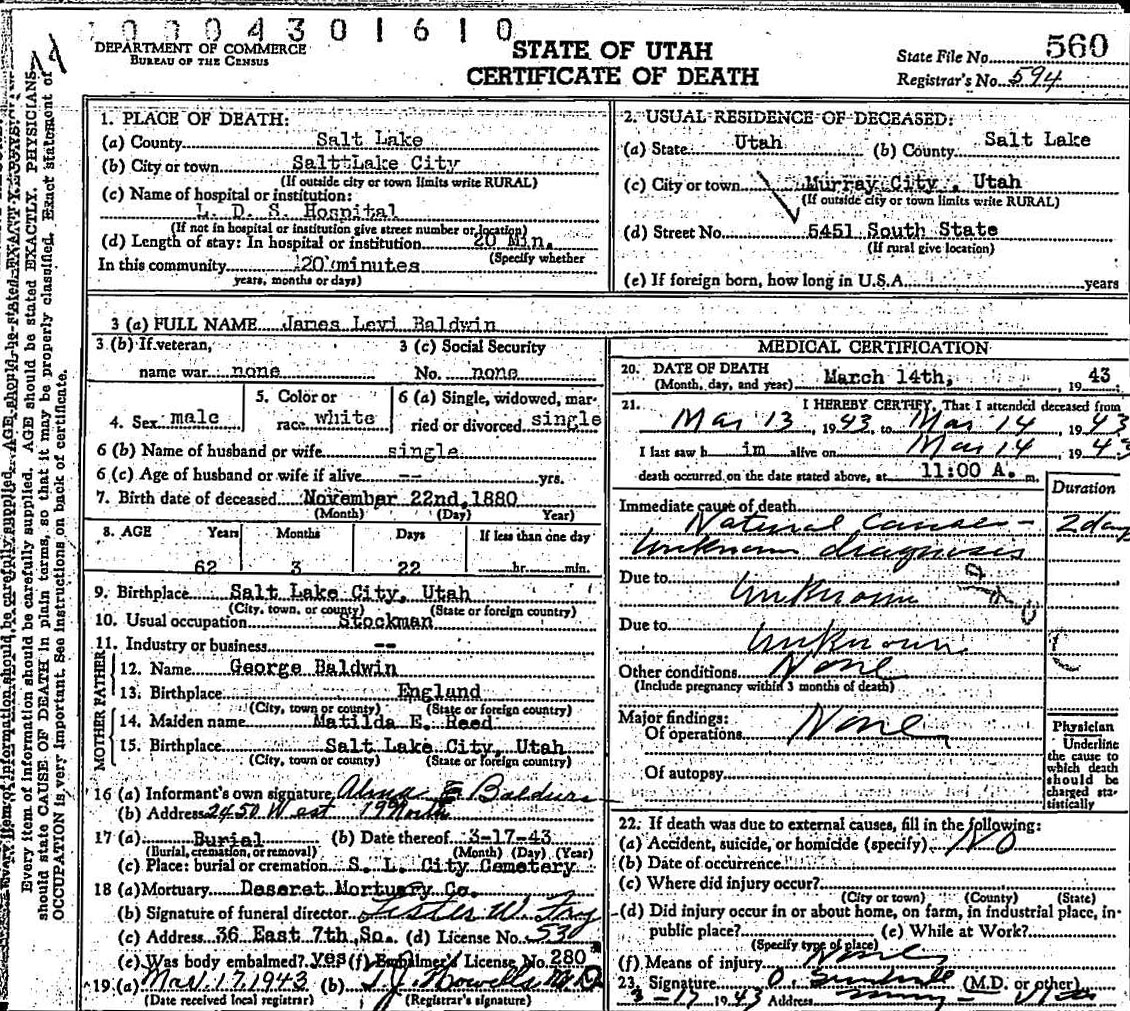 0 0 0 4 3 0 1 6 1 0
DEPARTMENT OF COMMERCE
BUREAU OF THE CENSUS
STATE OF UTAH
CERTIFICATE OF DEATH
State File No. 560
Registrar's No. 594
Every item of information should be carefully supplied. AGE should be stated EXACTLY. PHYSICIANS
should state CAUSE OF DEATH in plain terms, so that it may be properly classified. Exact statement of
OCCUPATION is very important. See instructions on back of certificate.
1. PLACE OF DEATH:
(a) County Salt Lake
(b) City or town Salt Lake City
(If outside city or town limits write RURAL)
(c) Name of hospital or institution:
L. D. S. Hospital
(If not in hospital or institution give street number or location)
(d) Length of stay: In hospital or institution 20 Min.
(Specify whether
In this community 20 minutes
years, months or days)
2. USUAL RESIDENCE OF DECEASED:
(a) State Utah (b) County Salt Lake
(c) City or town Murray City, Utah
(If outside city or town limits write RURAL)
(d) Street No. 5451 South State
(If rural give location)
(e) If foreign born, how long in U.S.A. years
3 (a) FULL NAME James Levi Baldwin
3 (b) If veteran, 3 (c) Social Security
name war none No. none
4. Sex male 5. Color or race white 6 (a) Single, widowed, married or divorced single
6 (b) Name of husband or wife single
6 (c) Age of husband or wife if alive -- yrs.
7. Birth date of deceased November 22nd, 1880
(Month) (Day) Year)
8. AGE Years Months Days If less than one day
62 3 22 hr. min.
9. Birthplace Salt Lake City, Utah
(City, town, or county) (State or foreign country)
10. Usual occupation Stockman
11. Industry or business --
FATHER
12. Name George Baldwin
13. Birthplace England
(City, town or county) (State or foreign country)
MOTHER
14. Maiden name Matilda E. Reed
15. Birthplace Salt Lake City, Utah
(City, town, or county) (State or foreign country)
16 (a) Informant's own signature E Baldwin
(b) Address 2450 West North
17 (a) Burial (b) Date thereof 3-17-43
(Burial, cremation, or removal) (Month) (Day) (Year)
(c) Place: burial or cremation S. L. City Cemetery
18 (a) Mortuary Deseret Mortuary Co.
(b) Signature of funeral director Lester W.
(c) Address 36 East 7th So. (d) License No. 530
(e) Was body embalmed? yes (f) Embalmer's License No. 280
19 (a) Mar. 17, 1943 (b) T.J. Howells M.D
(Date received local registrar) (Registrar's signature)
MEDICAL CERTIFICATION
20. DATE OF DEATH
(Month, day, and year) March 14th, , 19 43
21. I HEREBY CERTIFY, That I attended deceased from
Mar 13, 1943, to Mar 14, 1943
I last saw h im alive on Mar 14, 1943
death occurred on the date stated above, at 11:00 A. m.
Duration
Immediate cause of death
Natural Causes - 2 day
Unknown diagnosis
Due to Unknown
Due to
Unknown
Other conditions None
(Include pregnancy within 3 months of death)
Major findings:
Of operations None
Of autopsy
Physician
Underline
the cause to
which death
should be
charged sta-
tistically
22. If death was due to external causes, fill in the following:
(a) Accident, suicide, or homicide (specify) NO
(b) Date of occurrence
(c) Where did injury occur?
(City or town) (County) (State)
(d) Did injury occur in or about home, on farm, in industrial place, in
public place? (e) While at Work?
(Specify type of place)
(f) Means of injury None
23. Signature O. (M.D. or other)
3-17 1943 Address Murray - Utah